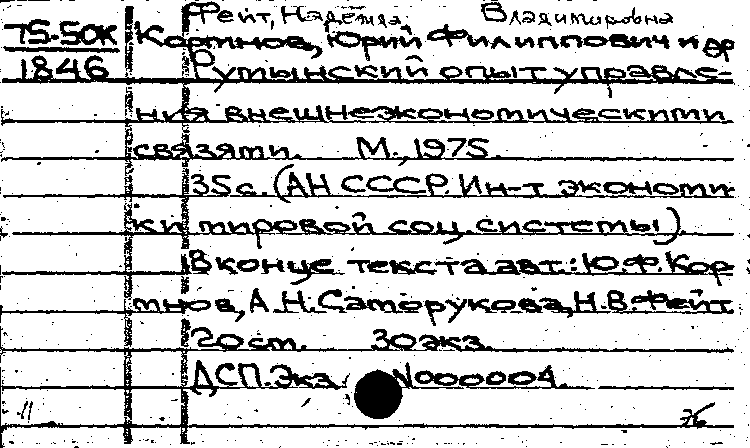 Фейт, Надежда Владимировна
75-50К Кормнов, Юрий Филиппович и др
1846 Румынский опыт управле-
ния внешнеэкономическими
связями. М., 1975.
35 с. (АН СССР. Ин-т экономи
ки мировой соц. системы)
В конце текста авт.: Ю.Ф. Кор
мнов, А.Н. Саморукова, Н.В. Фейт
20 см. 30 экз.
ДСП. Экз. N000004.
11 76